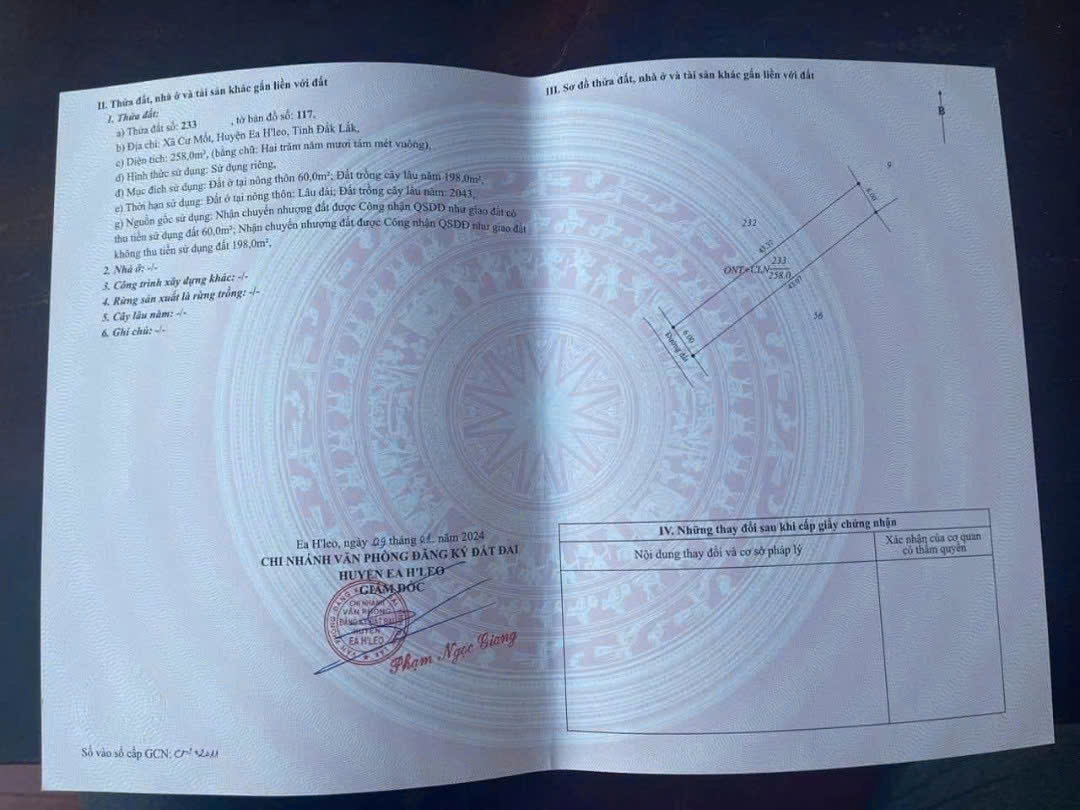 II. Thửa đất, nhà ở và tài sản khác gắn liền với đất
1. Thửa đất:
a) Thửa đất số: 233 , tờ bản đồ số: 117,
b) Địa chỉ: Xã Cư Mốt, Huyện Ea H'leo, Tỉnh Đắk Lắk,
c) Diện tích: 258,0m², (bằng chữ: Hai trăm năm mươi tám mét vuông),
d) Hình thức sử dụng: Sử dụng riêng,
đ) Mục đích sử dụng: Đất ở tại nông thôn 60,0m²; Đất trồng cây lâu năm 198,0m²,
e) Thời hạn sử dụng: Đất ở tại nông thôn: Lâu dài; Đất trồng cây lâu năm: 2043,
g) Nguồn gốc sử dụng: Nhận chuyển nhượng đất được Công nhận QSDĐ như giao đất có
thu tiền sử dụng đất 60,0m²; Nhận chuyển nhượng đất được Công nhận QSDĐ như giao đất
không thu tiền sử dụng đất 198,0m²,
2. Nhà ở: -/-
3. Công trình xây dựng khác: -/-
4. Rừng sản xuất là rừng trồng: -/-
5. Cây lâu năm: -/-
6. Ghi chú: -/-
Ea H'leo, ngày 09 tháng 01 năm 2024
CHI NHÁNH VĂN PHÒNG ĐĂNG KÝ ĐẤT ĐAI
HUYỆN EA H'LEO
GIÁM ĐỐC
CHI NHÁNH
VĂN PHÒNG
ĐĂNG KÝ ĐẤT ĐAI
HUYỆN
EA H'LEO
Phạm Ngọc Giang
Số vào sổ cấp GCN:
III. Sơ đồ thửa đất, nhà ở và tài sản khác gắn liền với đất
B
9
6.00
232
ONT+CLN
233
258.0
56
6.00
Đường đất
IV. Những thay đổi sau khi cấp giấy chứng nhận
Nội dung thay đổi và cơ sở pháp lý
Xác nhận của cơ quan
có thẩm quyền